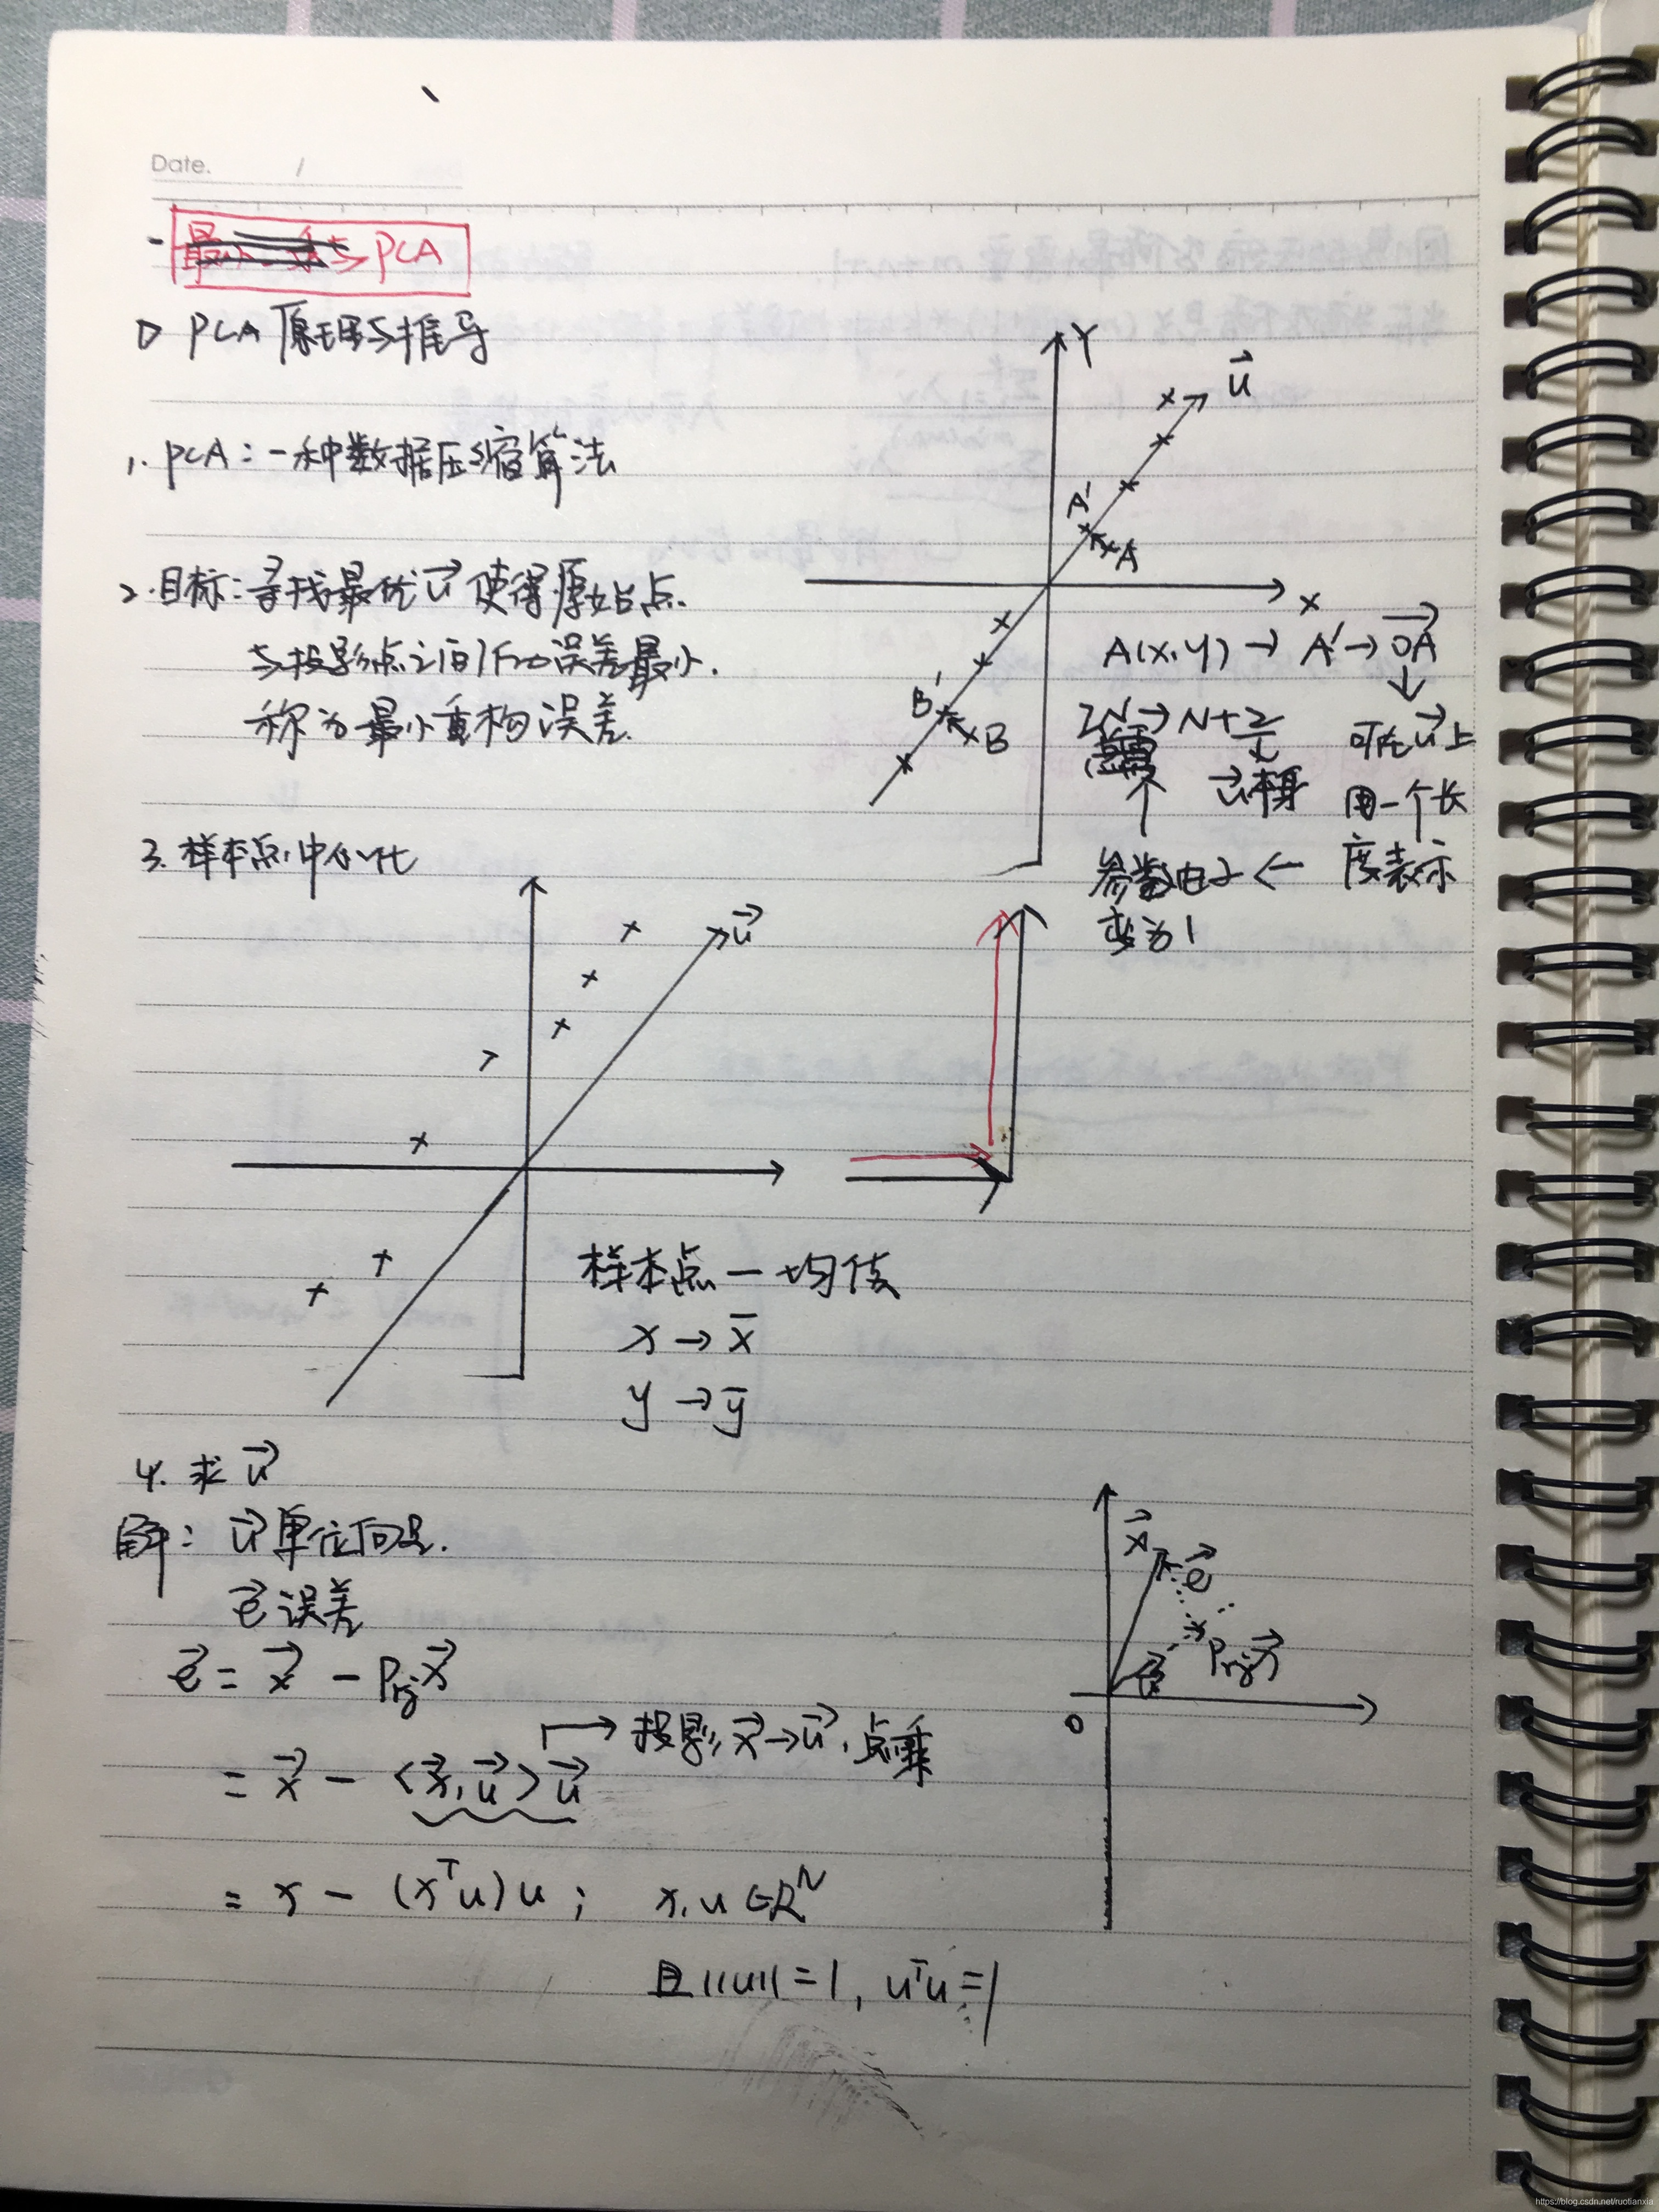 Date. /
PCA
1> PCA 原理与推导
1. PCA：一种数据压缩算法
2. 目标：寻找最优u 使得原始点
与投影点之间的误差最小.
称为最小重构误差.
Y
u
A'
A
X
B'
B
A(x,y) → A' → OA
2N → N+2
u本身
可在u上
用一个长
度表示
参数由2 ←
变为1
3. 样本点中心化
u
样本点 — 均值
x → x̄
y → ȳ
4. 求 u
解： u 单位向量.
e 误差
e = x - Prj x
= x - <x,u>u
→ 投影 x→u, 点乘
= x - (xᵀu)u ; x,u∈Rᴺ
且||u||=1, uᵀu=1
x
e
Prj x
u
0
https://blog.csdn.net/ruotianxia